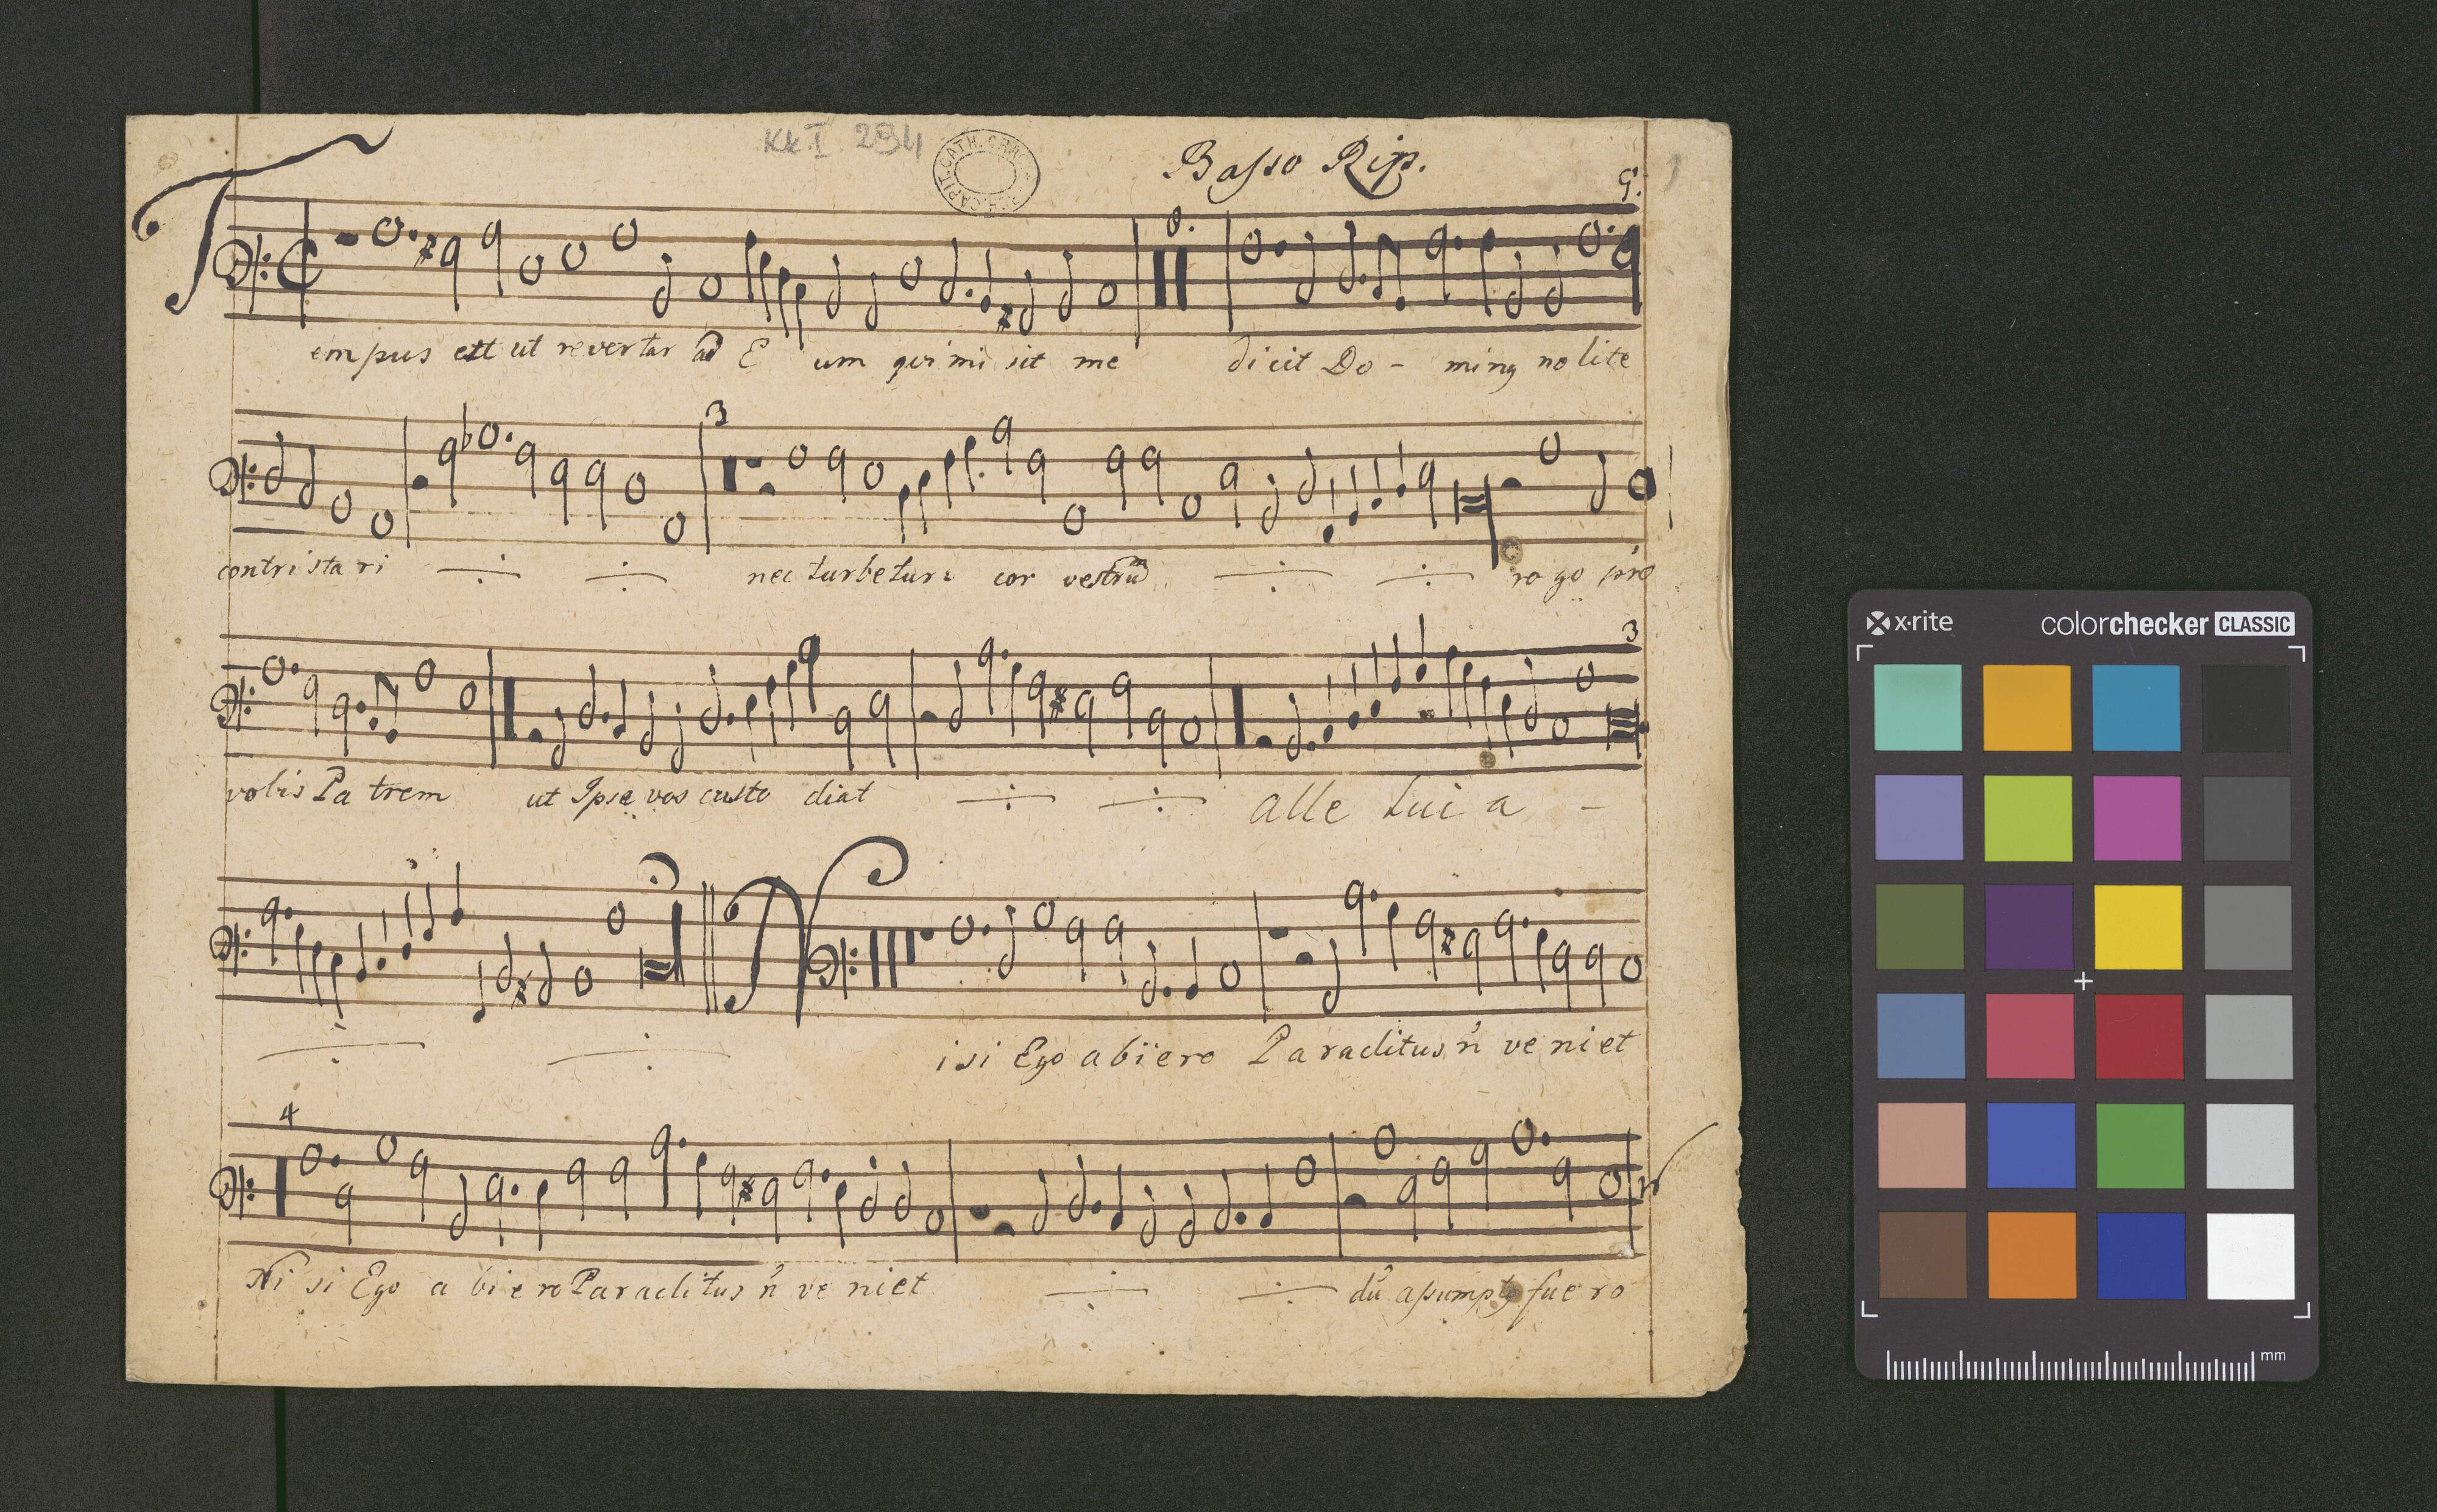 KkI. 294
Basso Rip.
8. 9.
T
empus est ut revertar ad E um qui mi sit me dicit Do - ming nolite
3
contri sta ri nec turbetur cor vestrũ rogo pro
3
vobis Pa trem ut Ipse vos custo diat alle lui a -
N
isi Ego abïero Paraclitus ñ ve niet
4
Ni si Ego a bi e ro Paraclitus ñ ve niet dũ asumpty fue ro
x·rite
colorchecker CLASSIC
mm